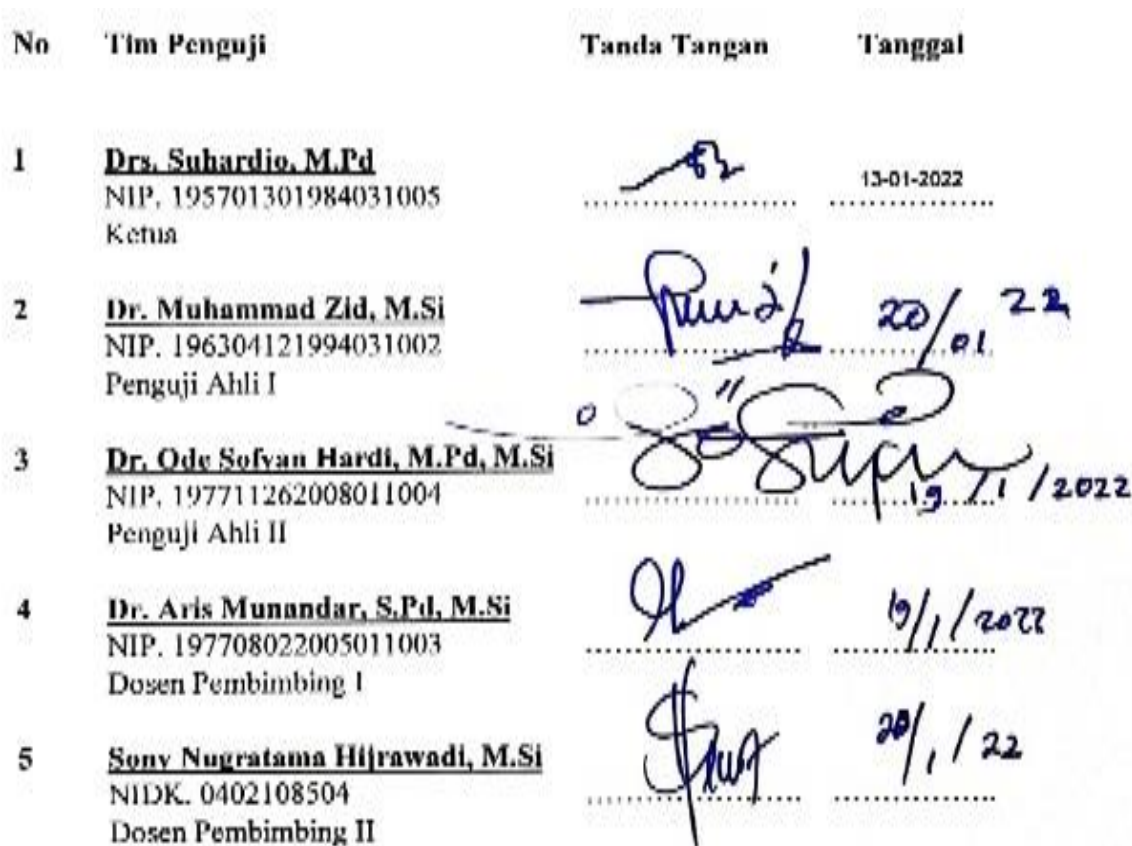 No Tim Penguji Tanda Tangan Tanggal
1 Drs. Suhardjo, M.Pd
NIP. 195701301984031005 13-01-2022
Ketua
2 Dr. Muhammad Zid, M.Si 20/01 22
NIP. 196304121994031002
Penguji Ahli I
3 Dr. Ode Sofyan Hardi, M.Pd, M.Si
NIP. 197711262008011004 19/1/2022
Penguji Ahli II
4 Dr. Aris Munandar, S.Pd, M.Si 19/1/2022
NIP. 197708022005011003
Dosen Pembimbing I
5 Sony Nugratama Hijrawadi, M.Si 20/1/22
NIDK. 0402108504
Dosen Pembimbing II